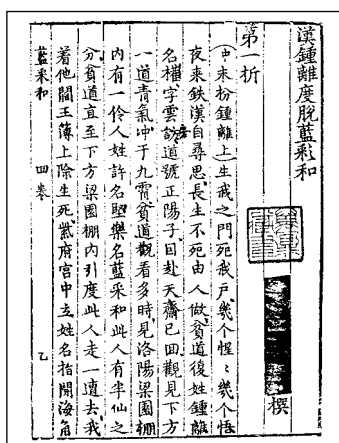 漢鍾離度脫藍彩和
撰
第一折
(冲末扮鍾離上)生我之門死我户幾个惺〻幾个悟
夜来鉄漢自尋思長生不死由人做貧道復姓鍾離
名權字雲訪道號正陽子因赴天齋已回觀見下方
一道青氣冲于九霄貧道觀看多時見洛陽梁園棚
内有一伶人姓許名堅樂名藍采和此人有半仙之
分貧道直至下方梁園棚内引度此人走一遭去我
着他閻王簿上除生死紫府宫中立姓名指開海角
藍采和 四卷 乙